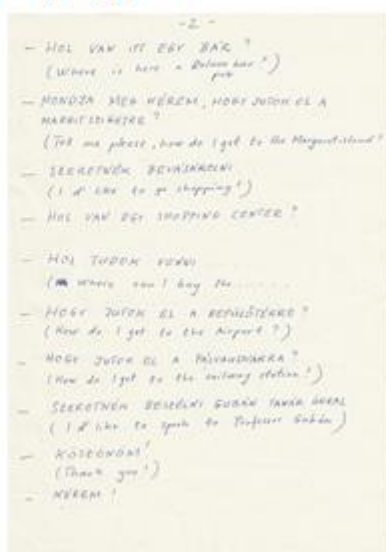 -2-
- HOL VAN ITT EGY BÁR?
(Where is here a
pub
- MONDJA MEG KÉREM, HOGY JUTOK EL A
MARGITSZIGETRE?
(Tell me please, how do I get to the Margaret island?
- SZERETNÉK BEVÁSÁROLNI
(I'd like to go shopping!)
- HOL VAN EGY SHOPPING CENTER?
- HOL TUDOK VENNI
(Where can I buy the........
- HOGY JUTOK EL A REPÜLŐTÉRRE?
(How do I get to the Airport?)
- HOGY JUTOK EL A PÁLYAUDVARRA?
(How do I get to the railway station!)
- SZERETNÉK BESZÉLNI GUBÁN TANÁR ÚRRAL
(I'd like to speak to Professor Gubán)
- KÖSZÖNÖM!
(Thank you!)
- KÉREM!